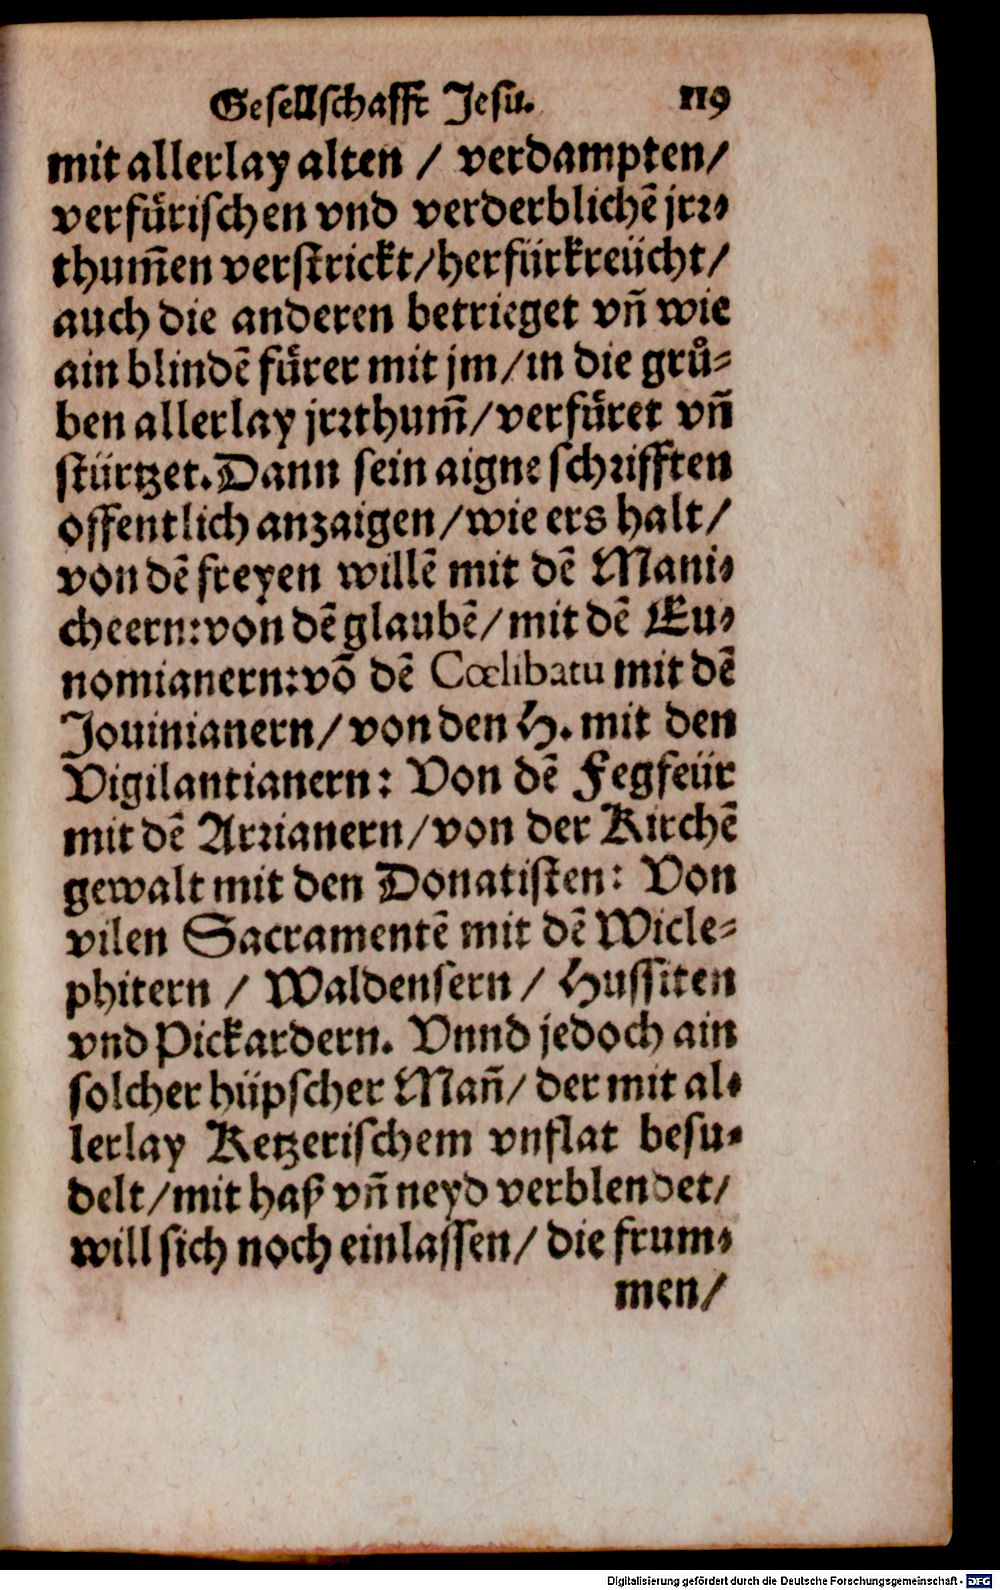 Gesellschafft Jesu. 119
mit allerlay alten / verdampten/
verfürischen vnd verderblichē jrr⸗
thum̄en verstrickt/herfürkreücht/
auch die anderen betrieget vn̄ wie
ain blindē fürer mit jm/in die grů⸗
ben allerlay jrrthum̄/verfüret vn̄
stürtzet. Dann sein aigne schrifften
offentlich anzaigen/wie ers halt/
von dē freyen willē mit dē Mani⸗
cheern:von dē glaubē/mit dē Eu⸗
nomianern:vō dē Cœlibatu mit dē
Jouinianern/von den H. mit den
Vigilantianern: Von dē Fegfeür
mit dē Arrianern/von der Kirchē
gewalt mit den Donatisten: Von
vilen Sacramentē mit dē Wicle⸗
phitern / Waldensern / Hussiten
vnd Pickardern. Vnnd jedoch ain
solcher hüpscher Man̄/der mit al⸗
lerlay Ketzerischem vnflat besu⸗
delt/mit haß vn̄ neyd verblendet/
will sich noch einlassen/die frum⸗
men/
Digitalisierung gefördert durch die Deutsche Forschungsgemeinschaft - DFG